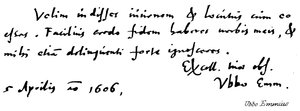 Velim indiffer
et locutus cum
esses. Facilius credo fidem haberes verbis meis, et
mihi etiam delinquenti forte ignosceres.
Excell. tuæ obs.
Ubbo Emm.
5 Aprilis ao 1606,
Ubbo Emmius